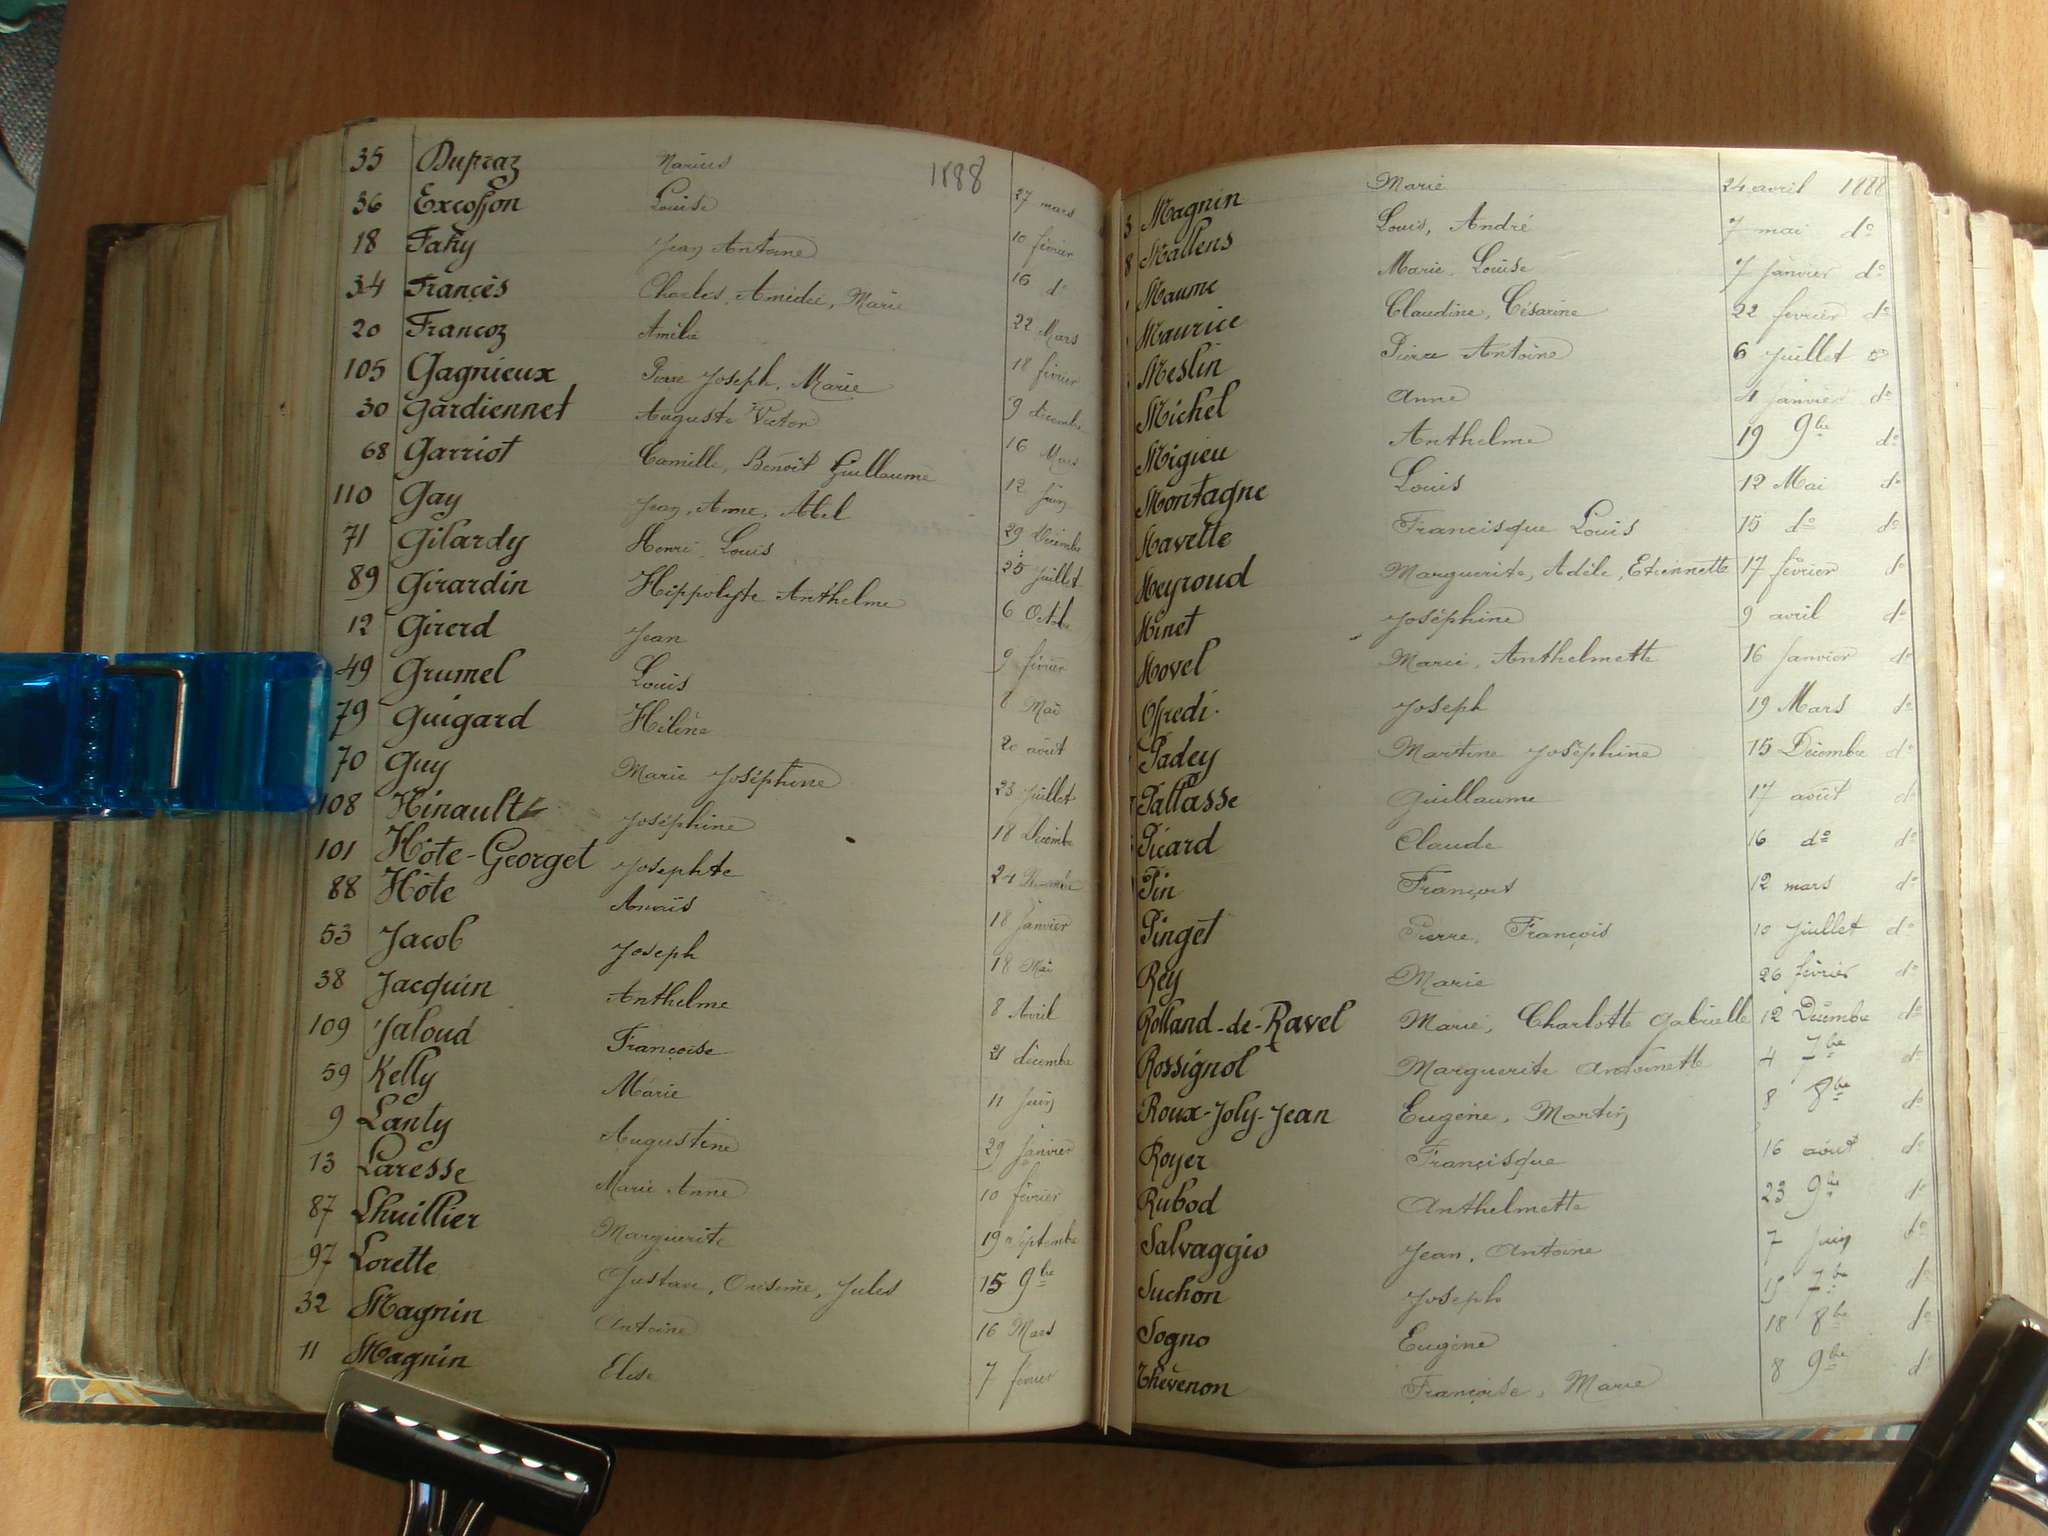 1888
35 Dupraz Marius 27 mars
36 Excoffon Louise 10 février
18 Fahy Jean Antoine 16 do
34 Francès Charles, Amédée, Marie 22 Mars
20 Francoz Amélie 18 février
105 Gagnieux Pierre Joseph, Marie 9 décembre
30 Gardiennet Auguste Victor 16 Mars
68 Garriot Camille, Benoît Guillaume 12 Juin
110 Gay Jean, Anne, Abel 29 Décembre
71 Gilardy Henri Louis 25 Juillet
89 Girardin Hippolyte Anthelme 6 Octobre
12 Girerd Jean 9 février
49 Grumel Louis Mai
79 Guigard Hélène 20 août
70 Guy Marie Joséphine 23 Juillet
108 Hinault Joséphine 18 Décembre
101 Hôte-Georget Josephte 24
88 Hôte Anaïs 18 Janvier
53 Jacob Joseph 18 Mai
38 Jacquin Anthelme 8 Avril
109 Jaloud Françoise 21 décembre
59 Kelly Marie 11 Juin
9 Lanty Augustine 29 Janvier
13 Laresse Marie Anne 10 février
87 Lhuillier Marguerite 19 septembre
97 Lorette Gustave, Onésime, Jules 15 9bre
32 Magnin Antoine 16 Mars
11 Magnin Elise 7 février
Magnin Marie 24 avril 1888
Mallens Louis, André 7 mai do
Maume Marie Louise 7 Janvier do
Maurice Claudine, Césarine 22 février do
Meslin Pierre Antoine 6 Juillet do
Michel Anne 4 Janvier do
Migieu Anthelme 19 9bre do
Montagne Louis 12 Mai do
Navette Francisque Louis 15 do do
Neyroud Marguerite, Adèle, Etiennette 17 février do
Ninet Joséphine 9 avril do
Novel Marie, Anthelmette 16 Janvier do
Offredi Joseph 19 Mars do
Padey Martine Joséphine 15 Décembre do
Pallasse Guillaume 17 août do
Picard Claude 16 do do
Pin François 12 mars do
Pinget Pierre, François 10 Juillet do
Rey Marie 26 février do
Rolland-de-Ravel Marie, Charlotte Gabrielle 12 Décembre do
Rossignol Marguerite Antoinette 4 7bre do
Roux-Joly-Jean Eugène, Martin 8 8bre do
Royer Francisque 16 août do
Rubod Anthelmette 23 9bre do
Salvaggio Jean, Antoine 7 Juin do
Suchon Joseph 7bre do
Sogno Eugène 18 8bre do
Thévenon Françoise, Marie 8 9bre do